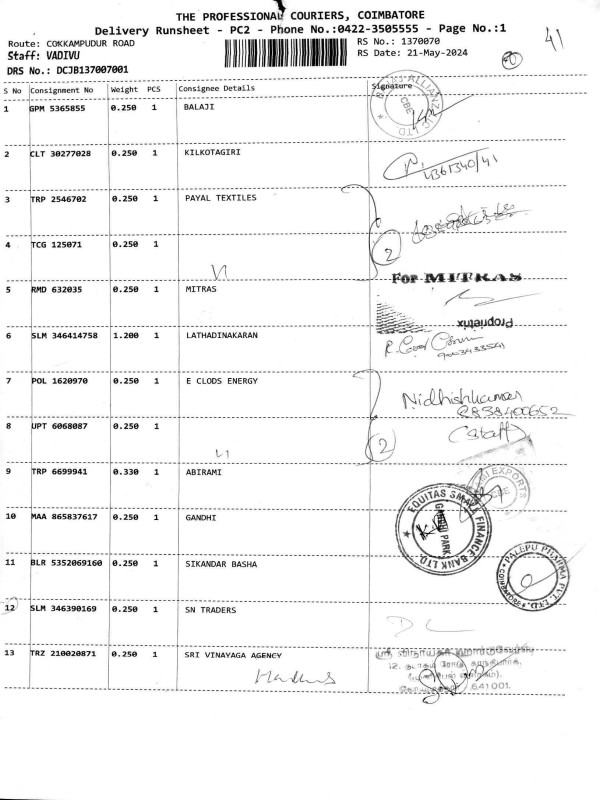 THE PROFESSIONAL COURIERS, COIMBATORE
Delivery Runsheet - PC2 - Phone No.:0422-3505555 - Page No.:1
Route: COKKAMPUDUR ROAD
RS No.: 1370070
41
Staff: VADIVU
RS Date: 21-May-2024
DRS No.: DCJB137007001
S No Consignment No Weight PCS Consignee Details Signature
1 GPM 5365855 0.250 1 BALAJI
2 CLT 30277028 0.250 1 KILKOTAGIRI
3 TRP 2546702 0.250 1 PAYAL TEXTILES
4 TCG 125071 0.250 1
2
For MITRAS
5 RMD 632035 0.250 1 MITRAS
Proprietrix
6 SLM 346414758 1.200 1 LATHADINAKARAN
7 POL 1620970 0.250 1 E CLODS ENERGY
Nidhishkumar
8838400652
8 UPT 6068087 0.250 1
(Staff)
2
9 TRP 6699941 0.330 1 ABIRAMI
EXPORTS
10 MAA 865837617 0.250 1 GANDHI
EQUITAS SMALL FINANCE BANK LTD.
GANDHI PARK
11 BLR 5352069160 0.250 1 SIKANDAR BASHA
PALEPU PHARMA PVT. LTD.
COIMBATORE
12 SLM 346390169 0.250 1 SN TRADERS
DC
13 TRZ 210020871 0.250 1 SRI VINAYAGA AGENCY
641 001.